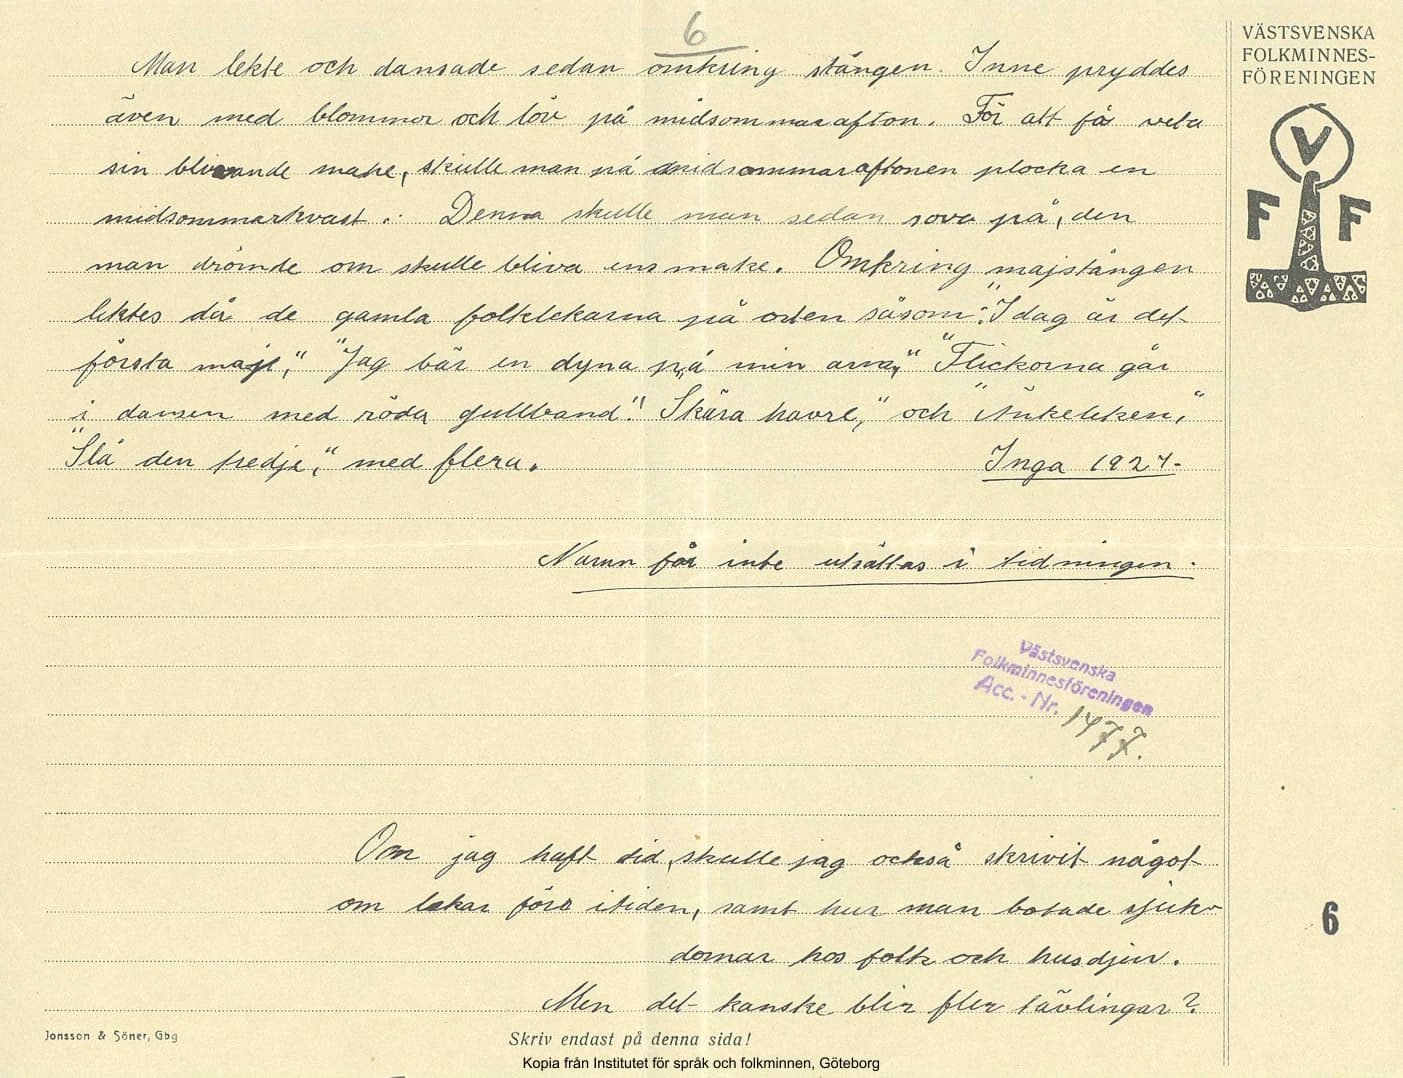 6
VÄSTSVENSKA
FOLKMINNES-
FÖRENINGEN
V
F F
Man lekte och dansade sedan omkring stången. Inne pryddes
även med blommor och löv på midsommarafton. För att få veta
sin blivande make, skulle man på midsommaraftonen plocka en
midsommarkvast. Denna skulle man sedan sova på, den
man drömde om skulle bliva ens make. Omkring majstången
lektes då de gamla folklekarna på orten såsom: "I dag är det
första maj", "Jag bär en dyna på min arm", "Flickorna går
i dansen med röda gullband". "Skära havre," och "Änkeleken,"
"Slå den tredje", med flera. Inga 1927.
Namn får inte utsättas i tidningen.
Västsvenska
Folkminnesföreningen
Acc.-Nr. 1477.
Om jag haft tid, skulle jag också skrivit något
om lekar förr i tiden, samt hur man botade sjuk-
domar hos folk och husdjur.
Men det kanske blir fler tävlingar?
6
Jonsson & Söner, Gbg
Skriv endast på denna sida!
Kopia från Institutet för språk och folkminnen, Göteborg